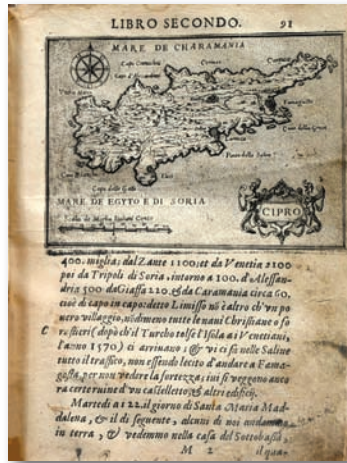 LIBRO SECONDO. 91
MARE DE CHARAMANIA
Famagusta
Capo delle Gatte
MARE DE EGYTO E DI SORIA
Scala de Miglia Italiani Cento
CIPRO
400. miglia; dal Zante 1100; et da Venetia 2100
poi da Tripoli di Soria, intorno a 100. d'Alessan-
dria 500 da Giaffa 220. & da Caramania circa 60,
cioè di capo in capo: detto Limisso nō è altro ch'vn po
uero villaggio, nōdimeno tutte le naui Christiane o fo
C
rastieri (dopò ch'il Turcho tolse l'Isola a i Venetiani,
l'anno 1570) ci arriuano; & vi ci fa nelle Saline
tutto il traffico, non essendo lecito d'andare a Fama-
gosta, per non vedere la fortezza; iui si veggono anco
ra certe ruine d'vn castelletto, & altri edificij.
Martedi a i 22. il giorno di Santa Maria Mad-
dalena, & il di seguente, alcuni di noi andammo
in terra, & vedemmo nella casa del Sottobassà,
M 2 il qua-